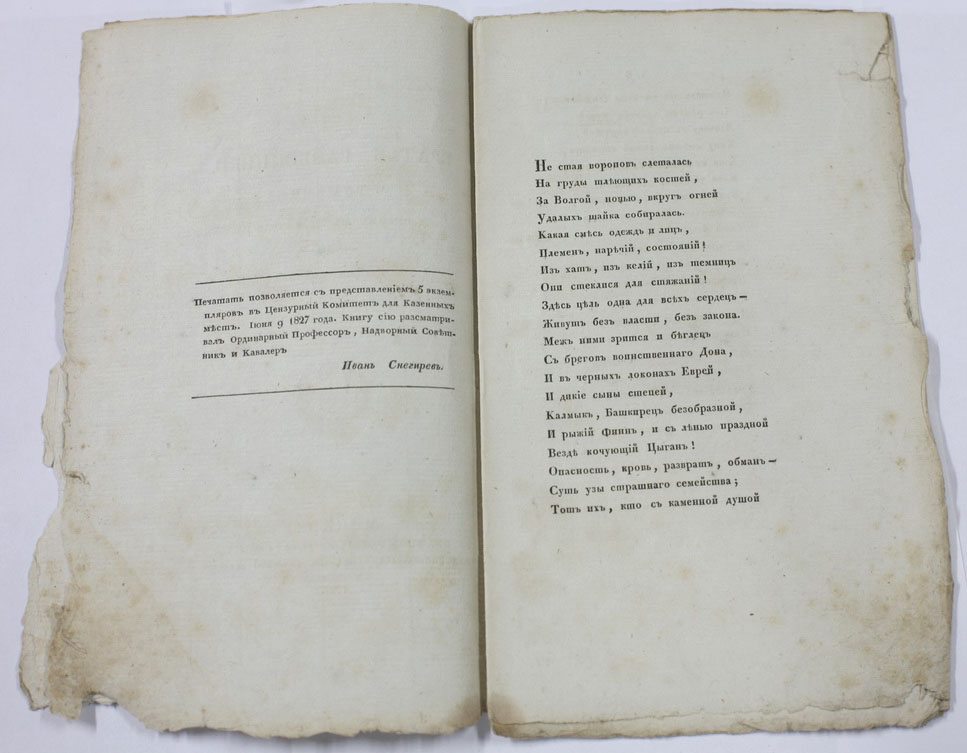 Печатать позволяется съ представленіемъ 5 экзем-
пляровъ въ Цензурный Комитетъ для Казенныхъ
мѣстъ. Іюня 9 1827 года. Книгу сію разсматри-
валъ Ординарный Профессоръ, Надворный Совѣт-
никъ и Кавалеръ
Иванъ Снегиревъ.
Не стая вороновъ слеталась
На груды тлѣющихъ костей,
За Волгой, ночью, вкругъ огней
Удалыхъ шайка собиралась.
Какая смѣсь одеждъ и лицъ,
Племенъ, нарѣчій, состояній!
Изъ хатъ, изъ келій, изъ темницъ
Они стеклися для стяжаній!
Здѣсь цѣль одна для всѣхъ сердецъ —
Живутъ безъ власти, безъ закона.
Межъ ними зрится и бѣглецъ
Съ бреговъ воинственнаго Дона,
И въ черныхъ локонахъ Еврей,
И дикіе сыны степей,
Калмыкъ, Башкирецъ безобразной,
И рыжій Финнъ, и съ лѣнью праздной
Вездѣ кочующій Цыганъ!
Опасность, кровь, развратъ, обманъ —
Суть узы страшнаго семейства;
Тотъ ихъ, кто съ каменной душой